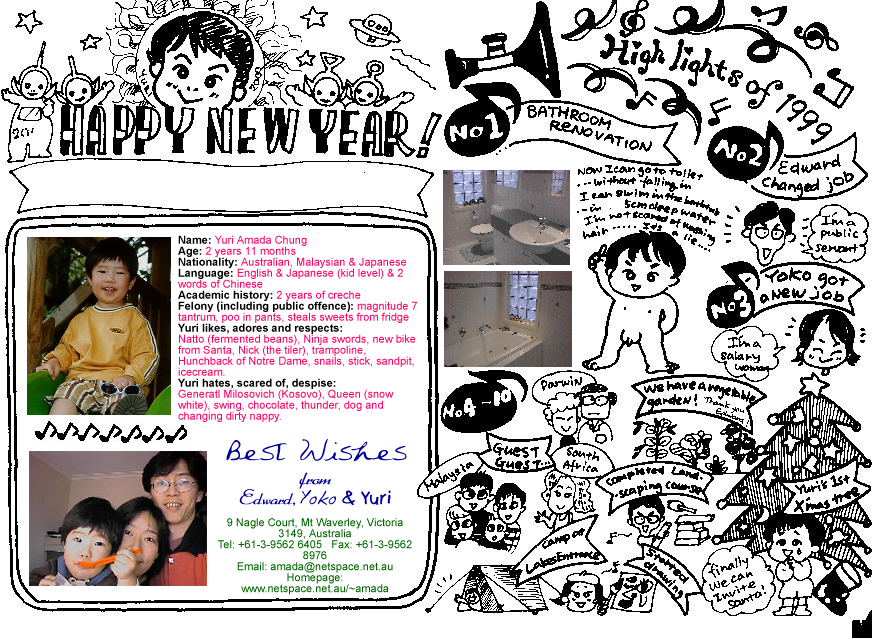 HAPPY NEW YEAR!
Name: Yuri Amada Chung
Age: 2 years 11 months
Nationality: Australian, Malaysian & Japanese
Language: English & Japanese (kid level) & 2
words of Chinese
Academic history: 2 years of creche
Felony (including public offence): magnitude 7
tantrum, poo in pants, steals sweets from fridge
Yuri likes, adores and respects:
Natto (fermented beans), Ninja swords, new bike
from Santa, Nick (the tiler), trampoline,
Hunchback of Notre Dame, snails, stick, sandpit,
icecream.
Yuri hates, scared of, despise:
Generatl Milosovich (Kosovo), Queen (snow
white), swing, chocolate, thunder, dog and
changing dirty nappy.
Best Wishes
from
Edward, Yoko & Yuri
9 Nagle Court, Mt Waverley, Victoria
3149, Australia
Tel: +61-3-9562 6405 Fax: +61-3-9562
8976
Email: amada@netspace.net.au
Homepage:
www.netspace.net.au/~amada
High lights of 1999
No1
BATHROOM
RENOVATION
Now I can go to toilet
...without falling in
I can swim in the bathtub
...in 5cm deep water
I'm not scared of washing
hair
No2
Edward
changed job
I'm a
public
servant
No3
Yoko got
a new job
I'm a
salary
woman
No4~10
Darwin
GUEST
GUEST...
South
Africa
Malaysia
We have a vegetable
garden!
Thank you
Completed Land-
scaping course
Camp at
Lakes Entrance
Started
drawing
Yuri's 1st
X'mas tree
finally
We can
invite
Santa!